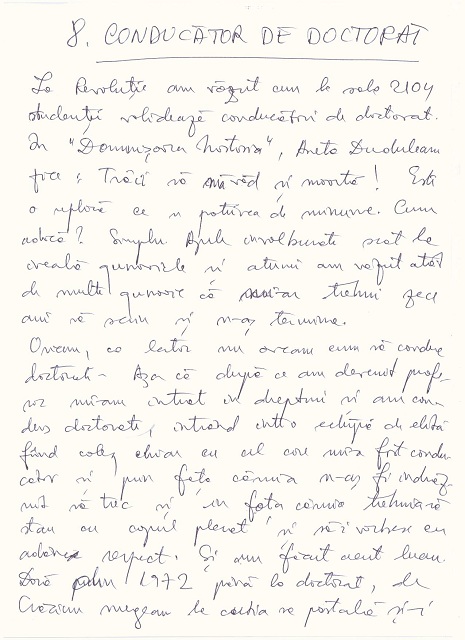 8. CONDUCĂTOR DE DOCTORAT
La Revoluție am văzut cum la sala 2104
studenții validează conducători de doctorat.
În "Domnișoara Nastasia",
zice: Trăii să mă văd și moartă! Este
o replică ce se potrivea de minune. Cum
adică? Simplu. Apele învolburate scot la
iveală gunoaiele și atunci am văzut atât
de multe gunoaie că numai trebui zece
ani să scriu și n-aș termina.
Oricum, ca lector nu aveam cum să conduc
doctorat. Așa că după ce am devenit profe-
sor intrat în drepturi și am con-
dus doctorate, intrând într-o echipă de elită
fiind coleg chiar cu cel care mi-a fost condu-
cător și prin fața căruia n-aș fi îndrăz-
nit să trec și în fața căruia trebuia să
stau cu capul plecat și să-i vorbesc cu
adânc respect. Și am făcut acest lucru.
Dacă prin 1972 până la doctorat, de
Crăciun mergeam la cutia sa poștală și-i